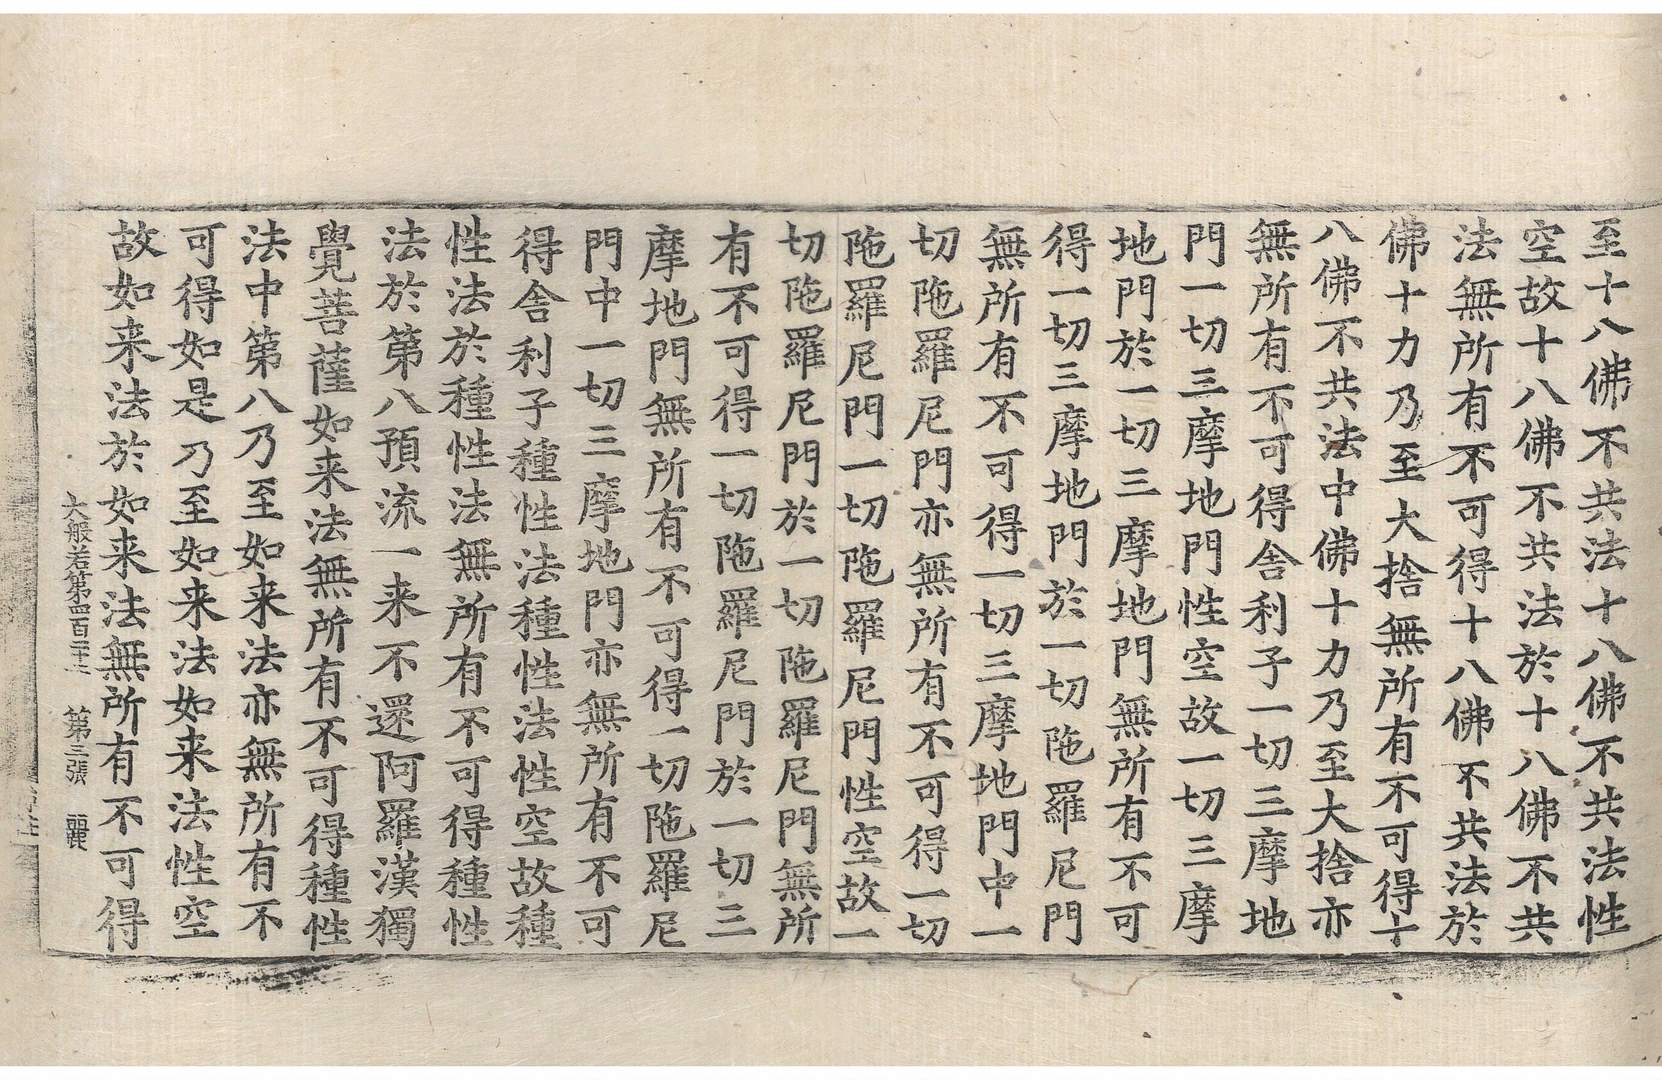 至十八佛不共法十八佛不共法性
空故十八佛不共法於十八佛不共
法無所有不可得十八佛不共法於
佛十力乃至大捨無所有不可得十
八佛不共法中佛十力乃至大捨亦
無所有不可得舍利子一切三摩地
門一切三摩地門性空故一切三摩
地門於一切三摩地門無所有不可
得一切三摩地門於一切陁羅尼門
無所有不可得一切三摩地門中一
切陁羅尼門亦無所有不可得一切
陁羅尼門一切陁羅尼門性空故一
切陁羅尼門於一切陁羅尼門無所
有不可得一切陁羅尼門於一切三
摩地門無所有不可得一切陁羅尼
門中一切三摩地門亦無所有不可
得舍利子種性法種性法性空故種
性法於種性法無所有不可得種性
法於第八預流一来不還阿羅漢獨
覺菩薩如来法無所有不可得種性
法中第八乃至如来法亦無所有不
可得如是乃至如来法如来法性空
故如来法於如来法無所有不可得
大般若第四百二十 第三張 麗